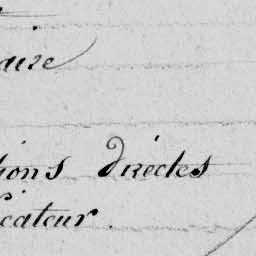 aire
tions directes
icateur.